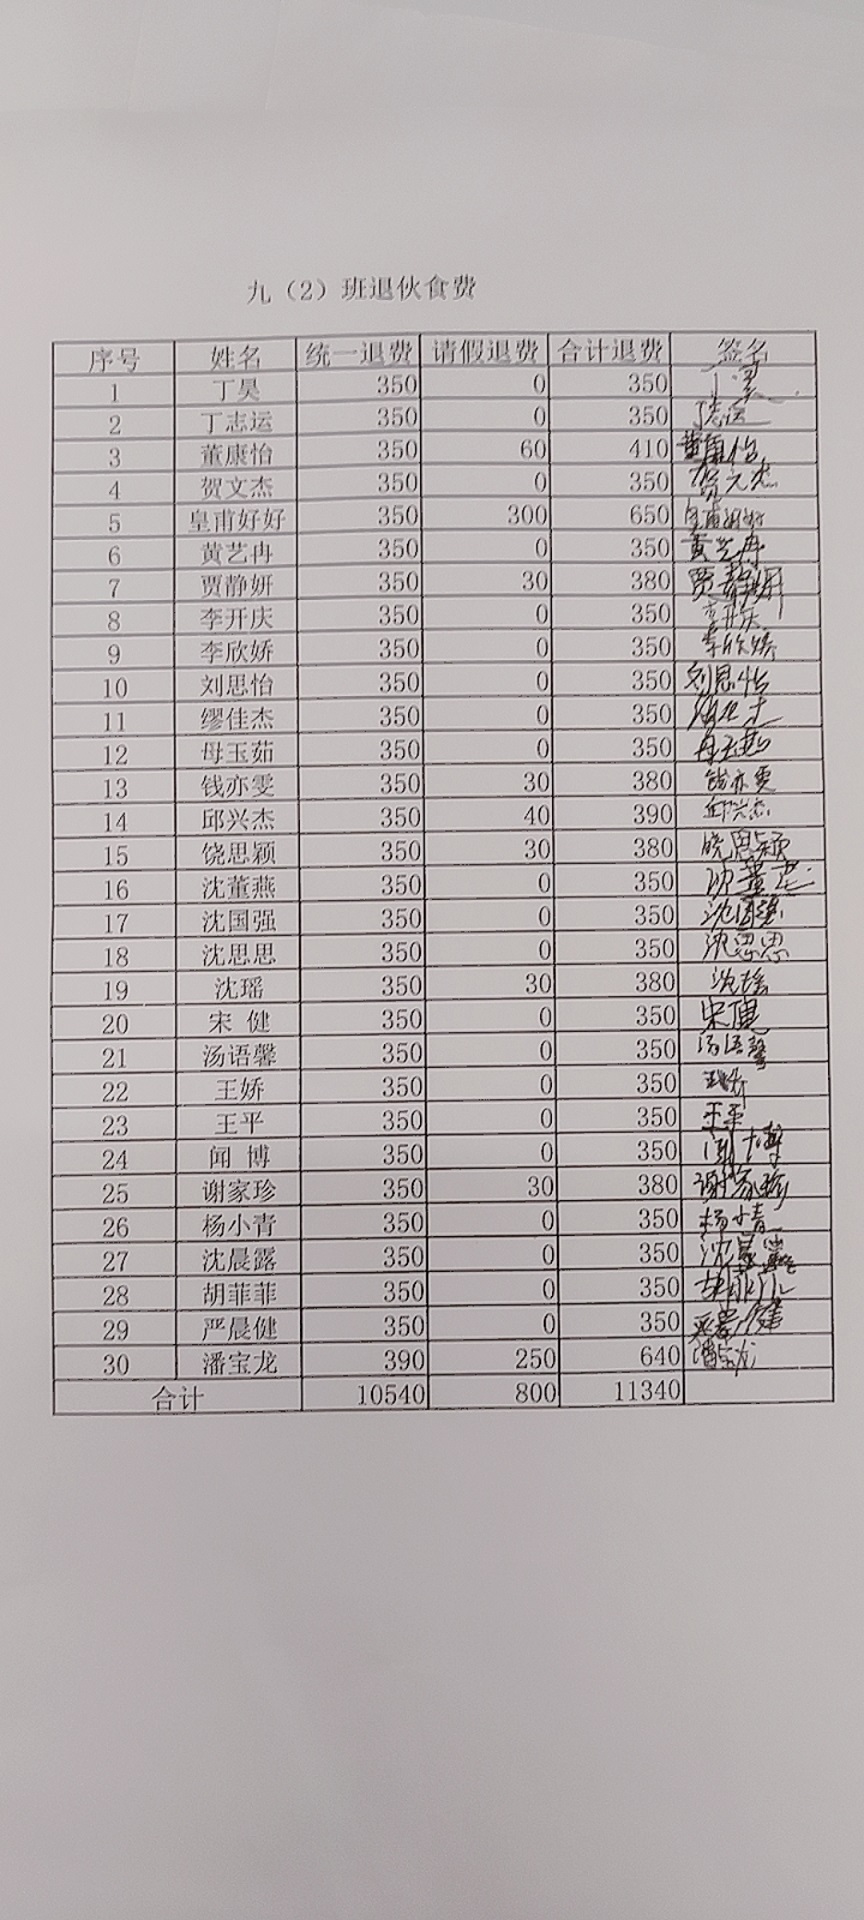 九（2）班退伙食费
序号 姓名 统一退费 请假退费 合计退费 签名
1 丁昊 350 0 350 丁昊
2 丁志运 350 0 350 丁志运
3 董康怡 350 60 410 董康怡
4 贺文杰 350 0 350 贺文杰
5 皇甫好好 350 300 650 皇甫好好
6 黄艺冉 350 0 350 黄艺冉
7 贾静妍 350 30 380 贾静妍
8 李开庆 350 0 350 李开庆
9 李欣娇 350 0 350 李欣娇
10 刘思怡 350 0 350 刘思怡
11 缪佳杰 350 0 350
12 母玉茹 350 0 350 母玉茹
13 钱亦雯 350 30 380 钱亦雯
14 邱兴杰 350 40 390 邱兴杰
15 饶思颖 350 30 380 饶思颖
16 沈董燕 350 0 350 沈董燕
17 沈国强 350 0 350 沈国强
18 沈思思 350 0 350 沈思思
19 沈瑶 350 30 380 沈瑶
20 宋 健 350 0 350 宋健
21 汤语馨 350 0 350 汤语馨
22 王娇 350 0 350 王娇
23 王平 350 0 350 王平
24 闻 博 350 0 350 闻博
25 谢家珍 350 30 380 谢家珍
26 杨小青 350 0 350
27 沈晨露 350 0 350 沈晨露
28 胡菲菲 350 0 350
29 严晨健 350 0 350 严晨健
30 潘宝龙 390 250 640 潘宝龙
合计 10540 800 11340